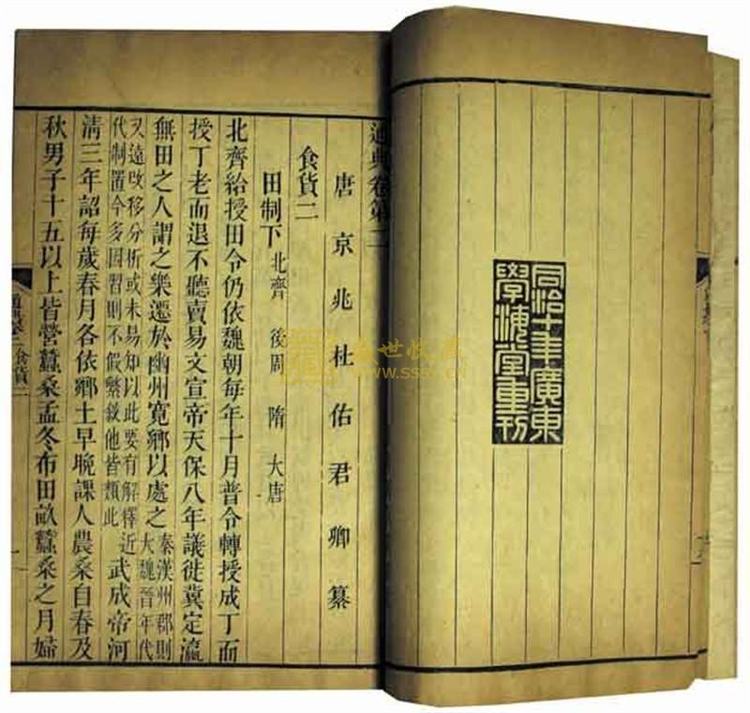 同治十年廣東
學海堂重刊
通典卷第二
唐京兆杜佑君卿纂
食貨二
田制下 北齊 後周 隋 大唐
北齊給授田令仍依魏朝每年十月普令轉授成丁而
授丁老而退不聽賣易文宣帝天保八年議徙冀定瀛
無田之人謂之樂遷於幽州寬鄉以處之
秦漢州郡則
大魏晉年代
又遠改移分析或未易知以此要有解釋近
代制置今多因習則不假繁敘他皆類此
武成帝河
清三年詔每歲春月各依鄉土早晚課人農桑自春及
秋男子十五以上皆營蠶桑孟冬布田畝蠶桑之月婦
食貨二